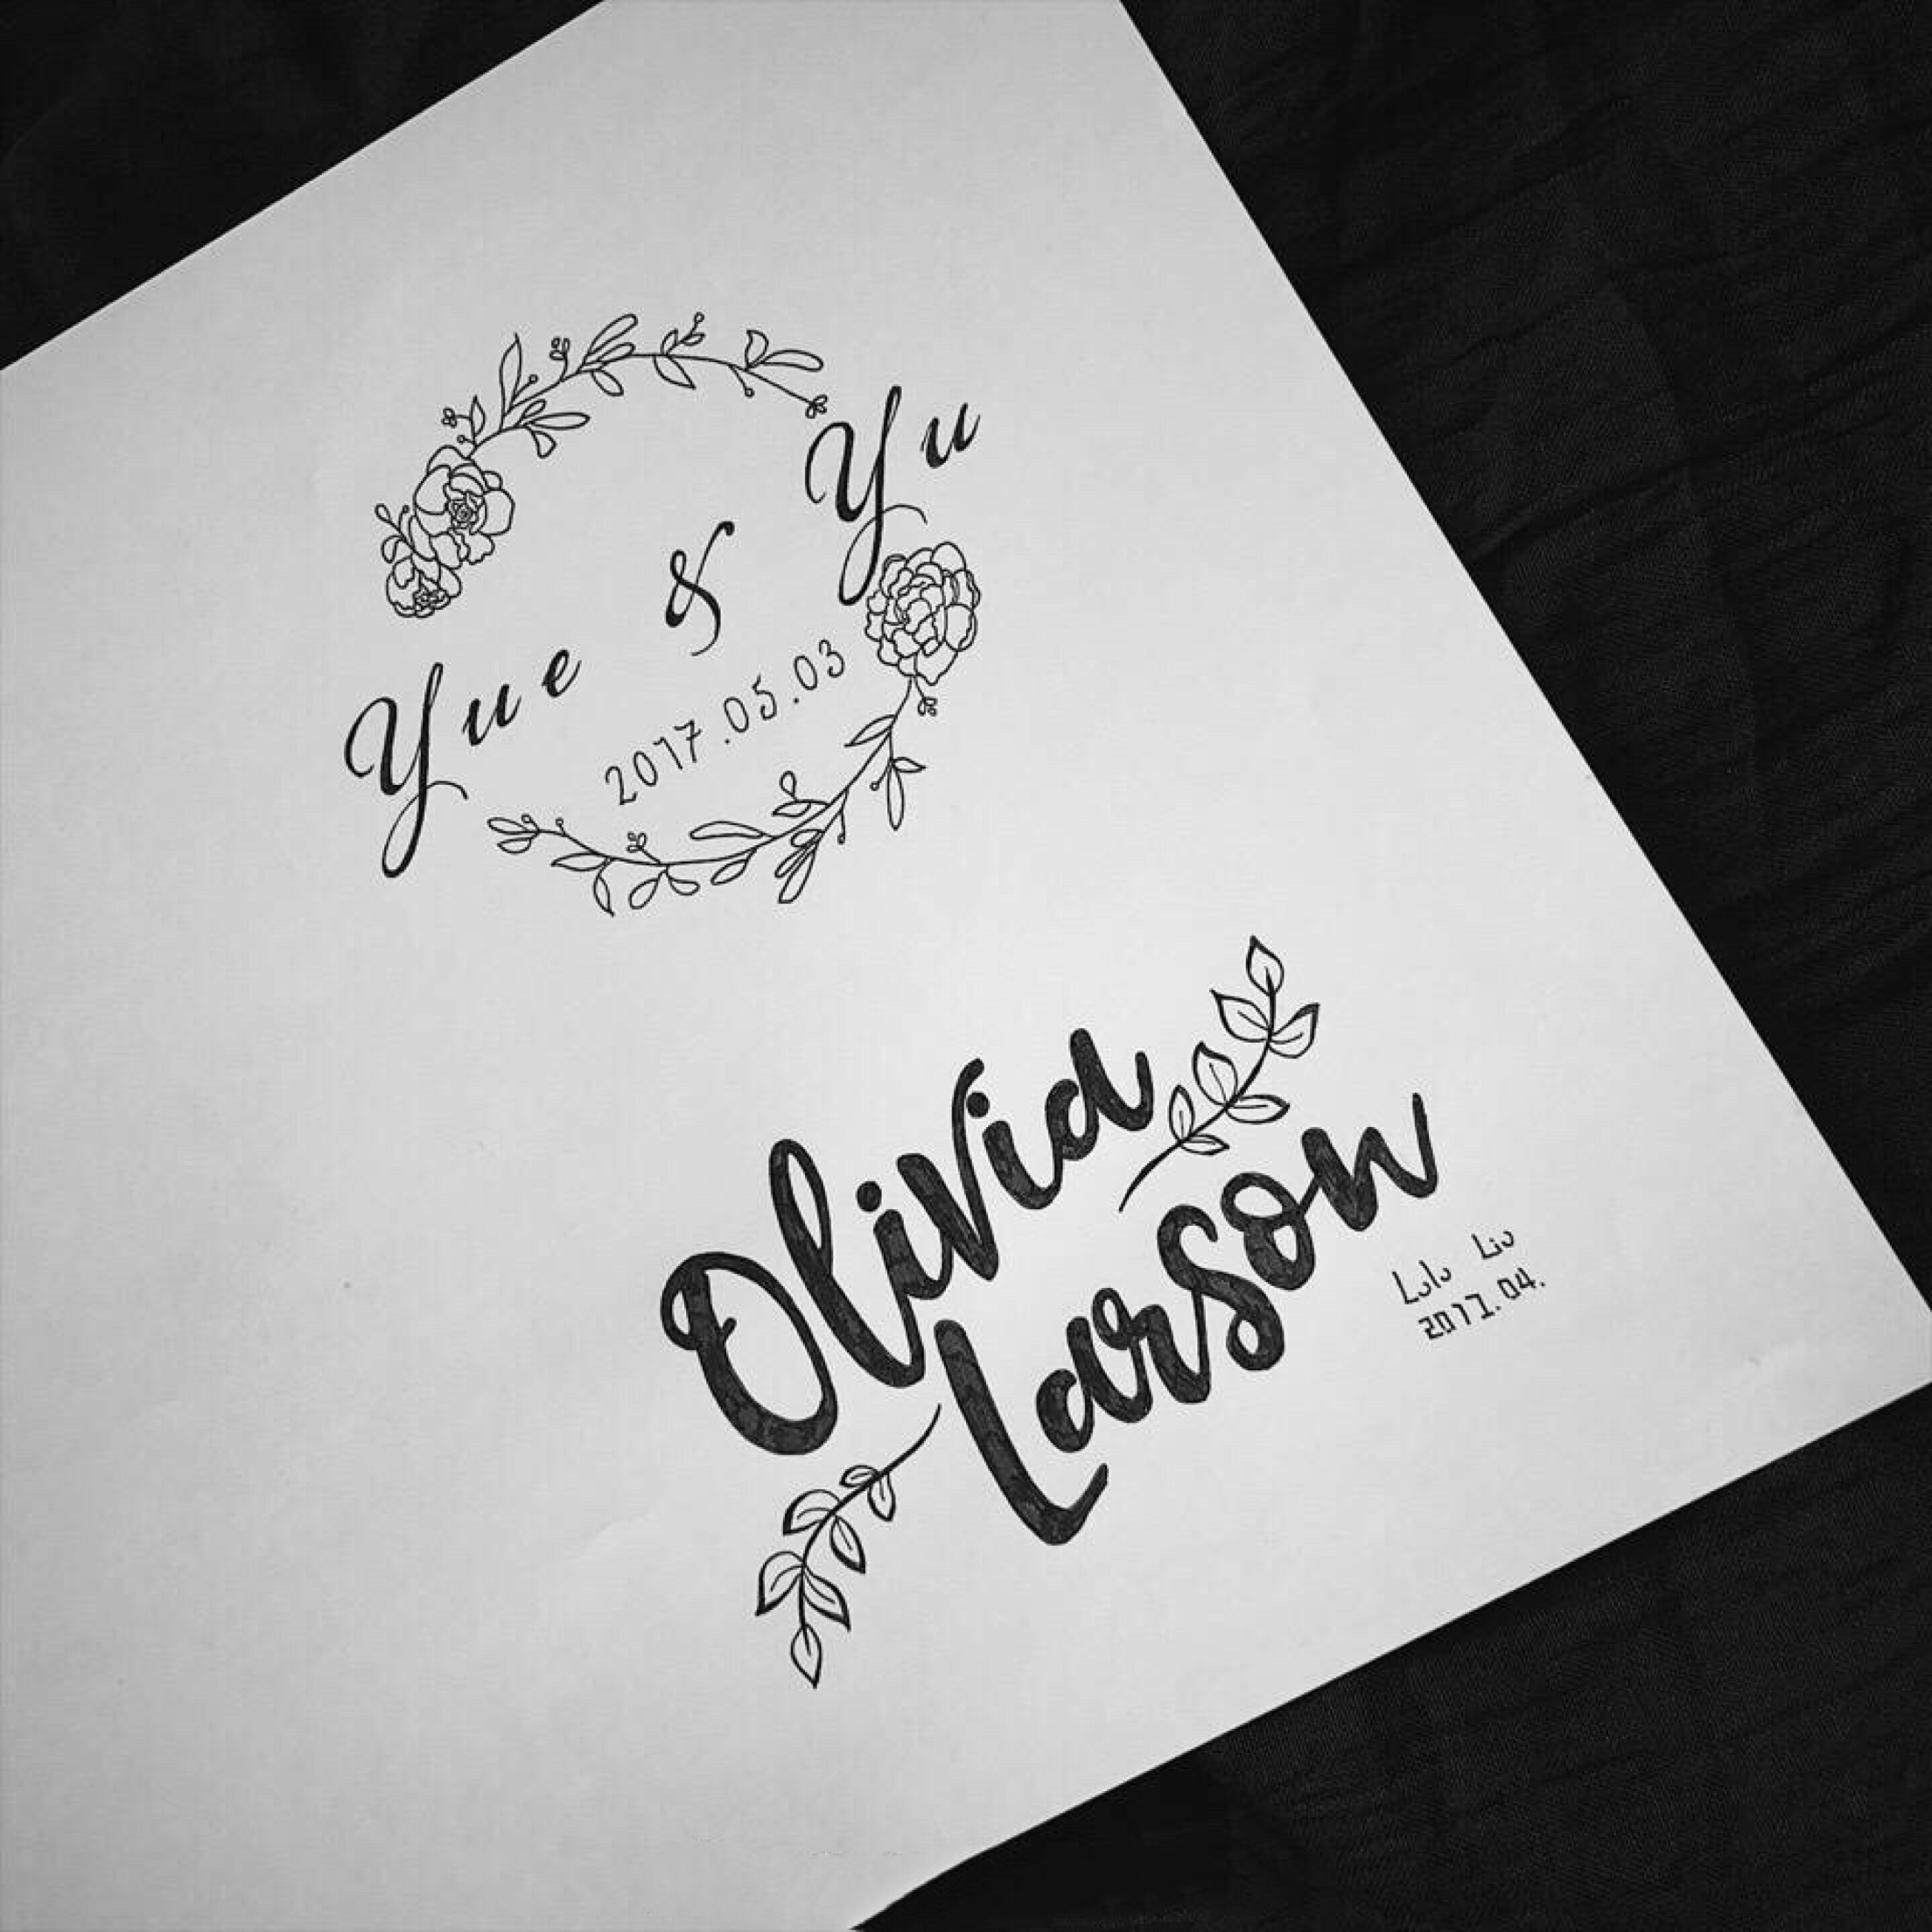 Yue & Yu
2017.05.03
Olivia
Larson
Lulu Liu
2017.04.